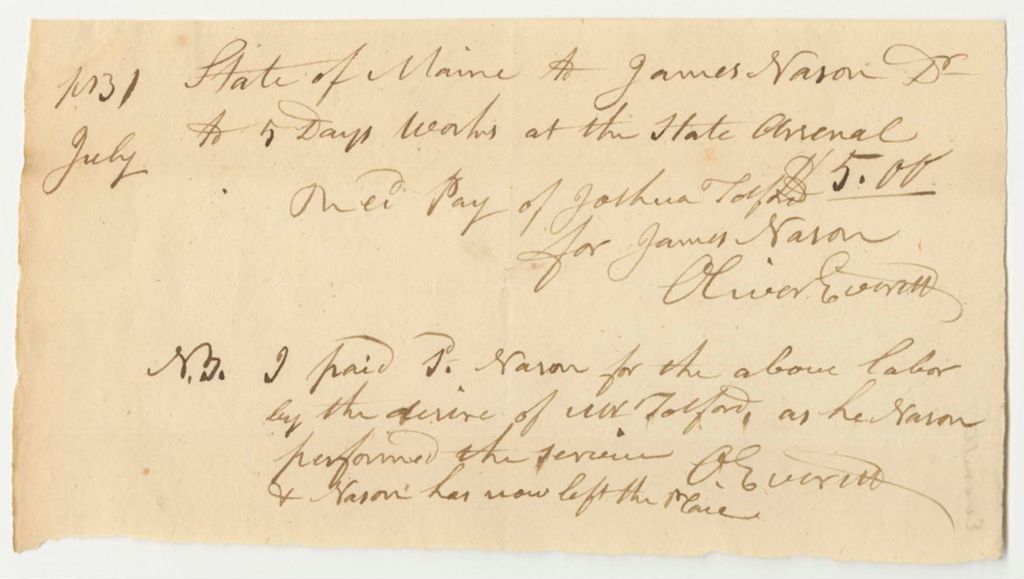 1831 State of Maine to James Nason Dr
July to 5 Days Works at the State Arsenal
$ 5.00
Rec'd Pay of Joshua Tolford
for James Nason
Oliver Everett
N.B. I paid J. Nason for the above labor
by the desire of Mr Tolford, as he Nason
performed the service
& Nason has now left the place
O. Everett